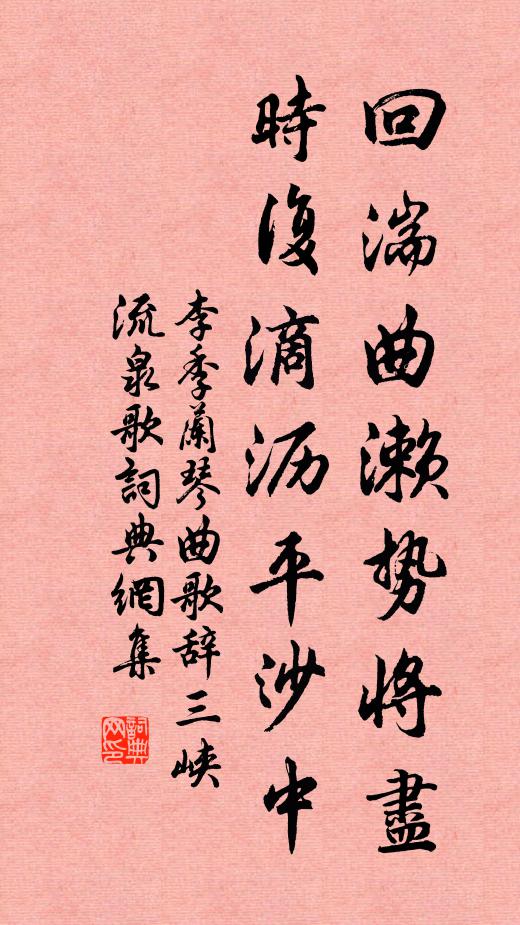 回湍曲濑势将盡
時復滴沥平沙中
李季蘭琴曲歌辞三峡
流泉歌詞典網集
詞典
网印